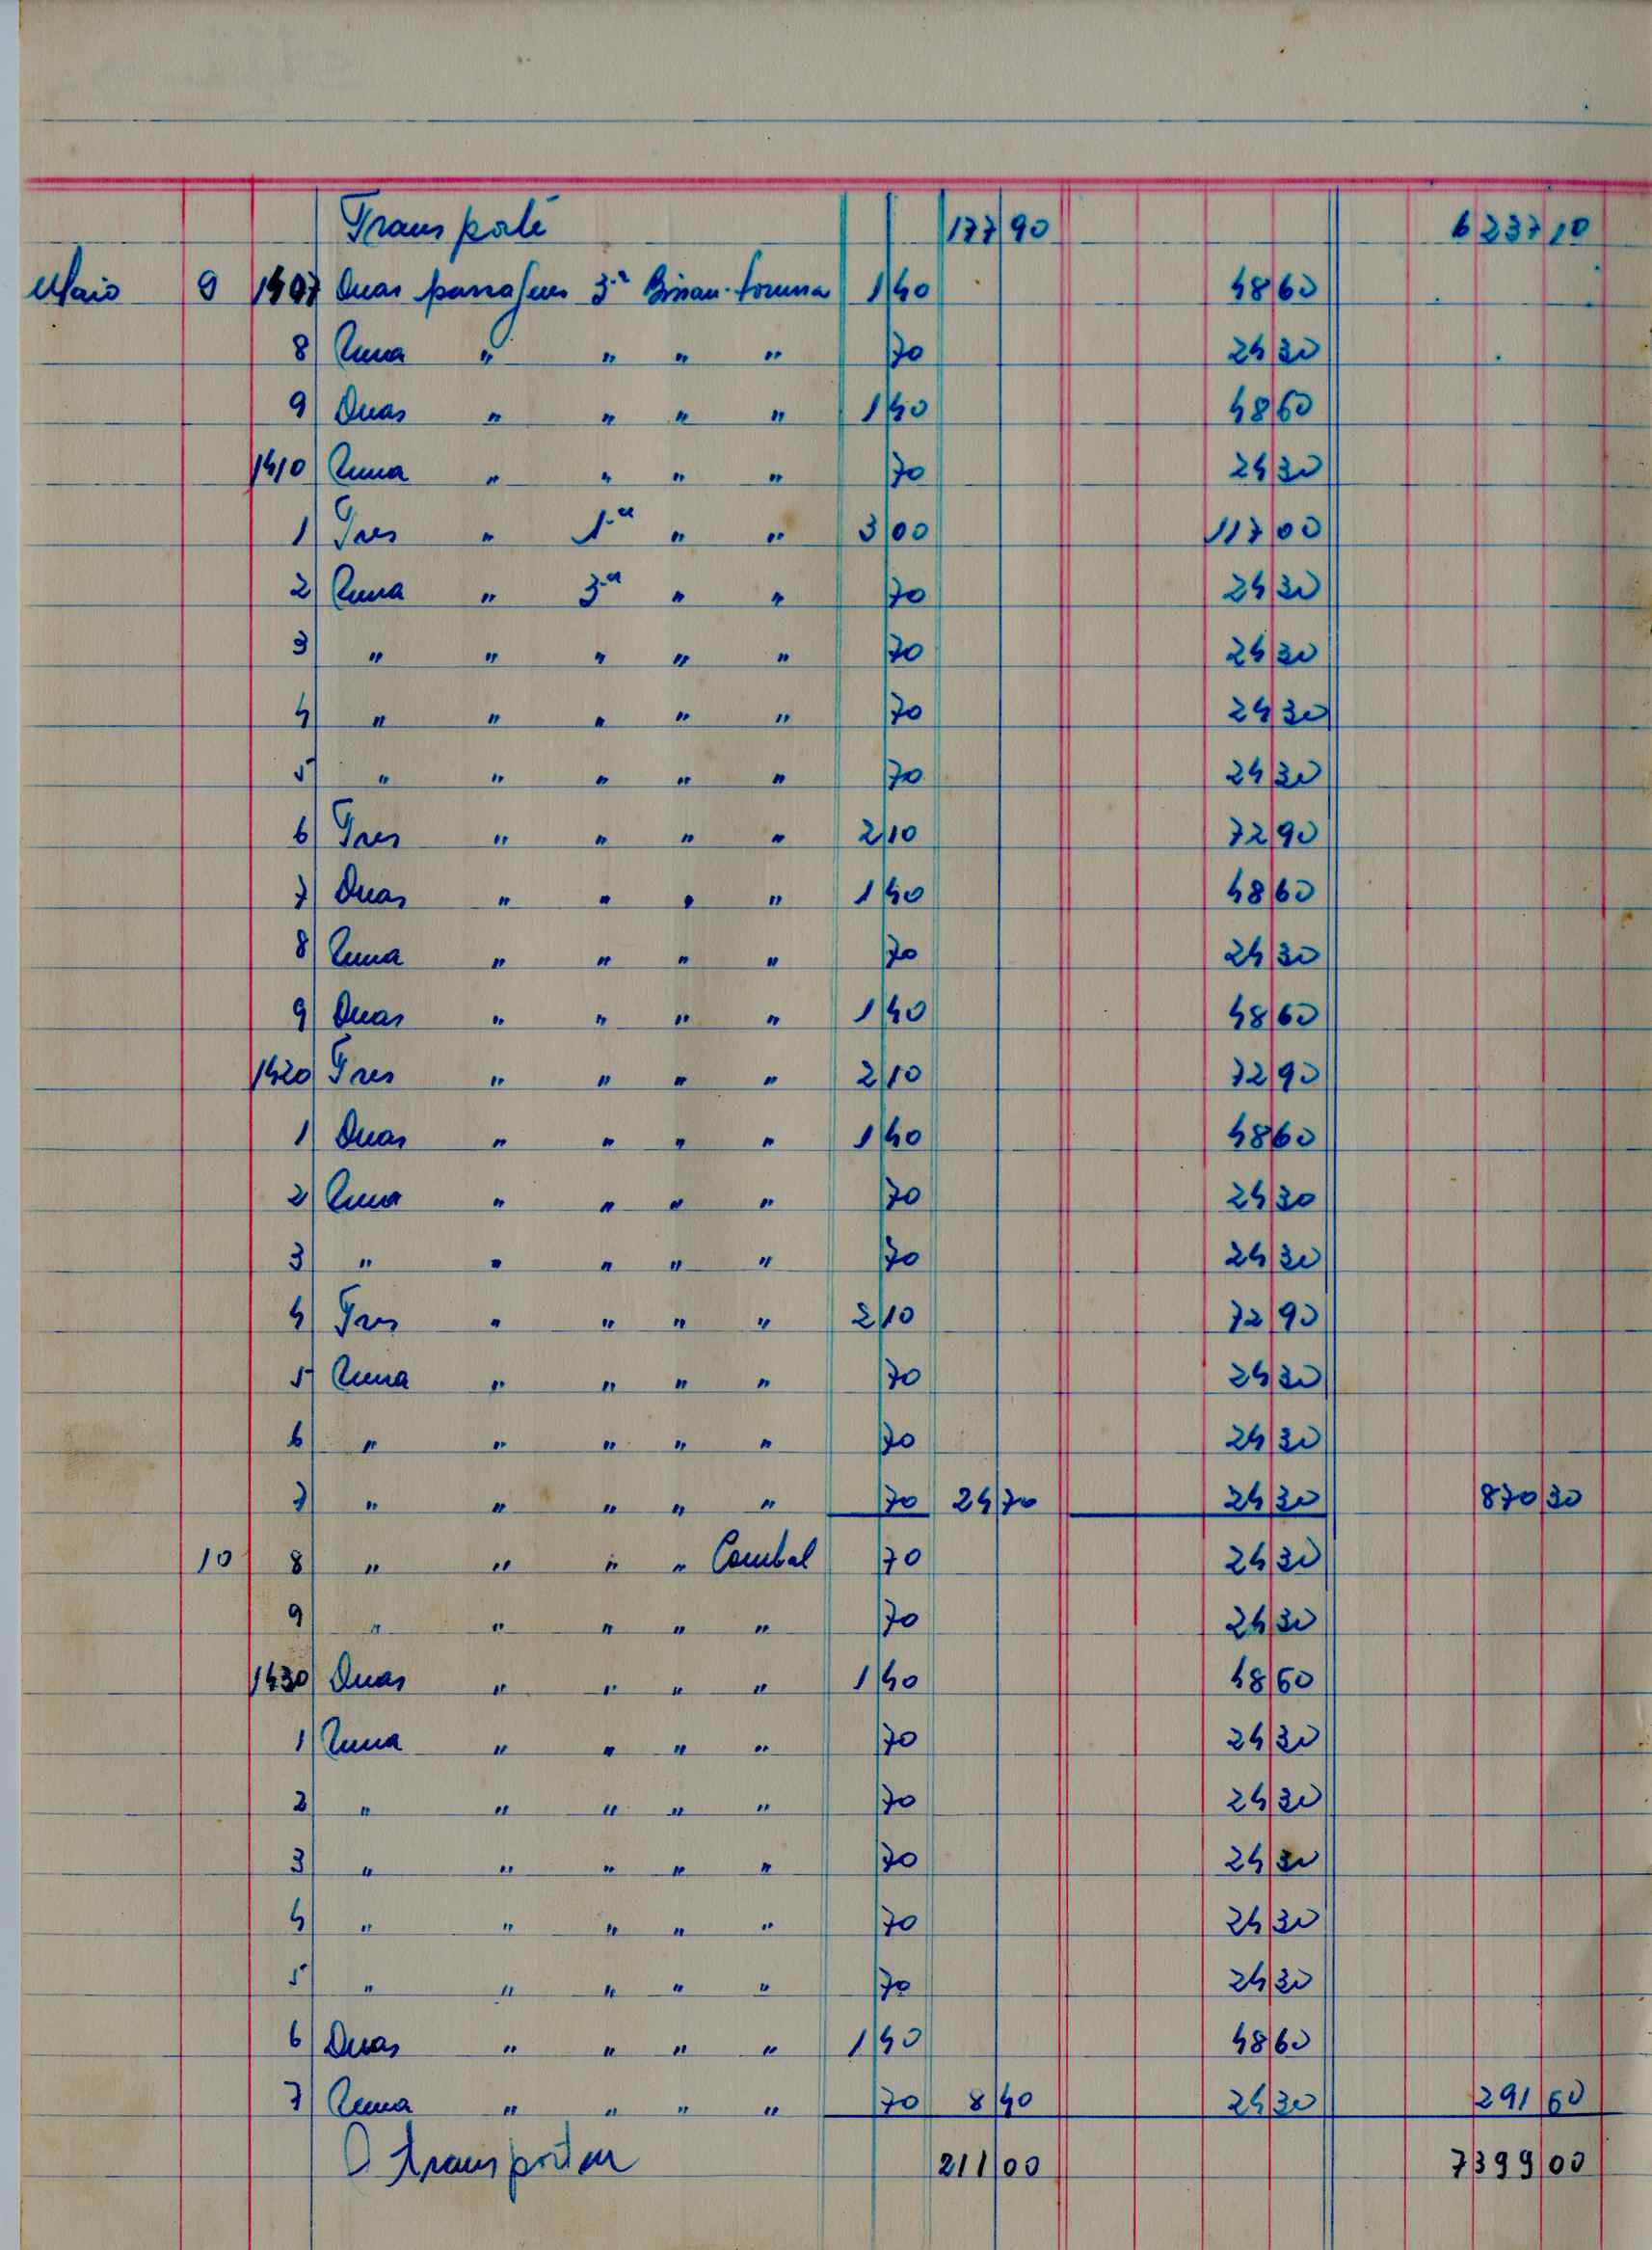 Transporte 177 90 6 237 10
Maio 9 1407 Duas passagens 3.ª Bissau-Formosa 1 40 48 60
8 Uma " " " " 70 24 30
9 Duas " " " " 1 40 48 60
1410 Uma " " " " 70 24 30
1 Tres " 1.ª " " 3 00 117 00
2 Uma " 3.ª " " 70 24 30
3 " " " " " 70 24 30
4 " " " " " 70 24 30
5 " " " " " 70 24 30
6 Tres " " " " 2 10 72 90
7 Duas " " " " 1 40 48 60
8 Uma " " " " 70 24 30
9 Duas " " " " 1 40 48 60
1420 Tres " " " " 2 10 72 90
1 Duas " " " " 1 40 48 60
2 Uma " " " " 70 24 30
3 " " " " " 70 24 30
4 Tres " " " " 2 10 72 90
5 Uma " " " " 70 24 30
6 " " " " " 70 24 30
7 " " " " " 70 24 70 24 30 870 30
10 8 " " " " Cambal 70 24 30
9 " " " " " 70 24 30
1430 Duas " " " " 1 40 48 60
1 Uma " " " " 70 24 30
2 " " " " " 70 24 30
3 " " " " " 70 24 30
4 " " " " " 70 24 30
5 " " " " " 70 24 30
6 Duas " " " " 1 40 48 60
7 Uma " " " " 70 8 40 24 30 291 60
A transportar 211 00 7 399 00